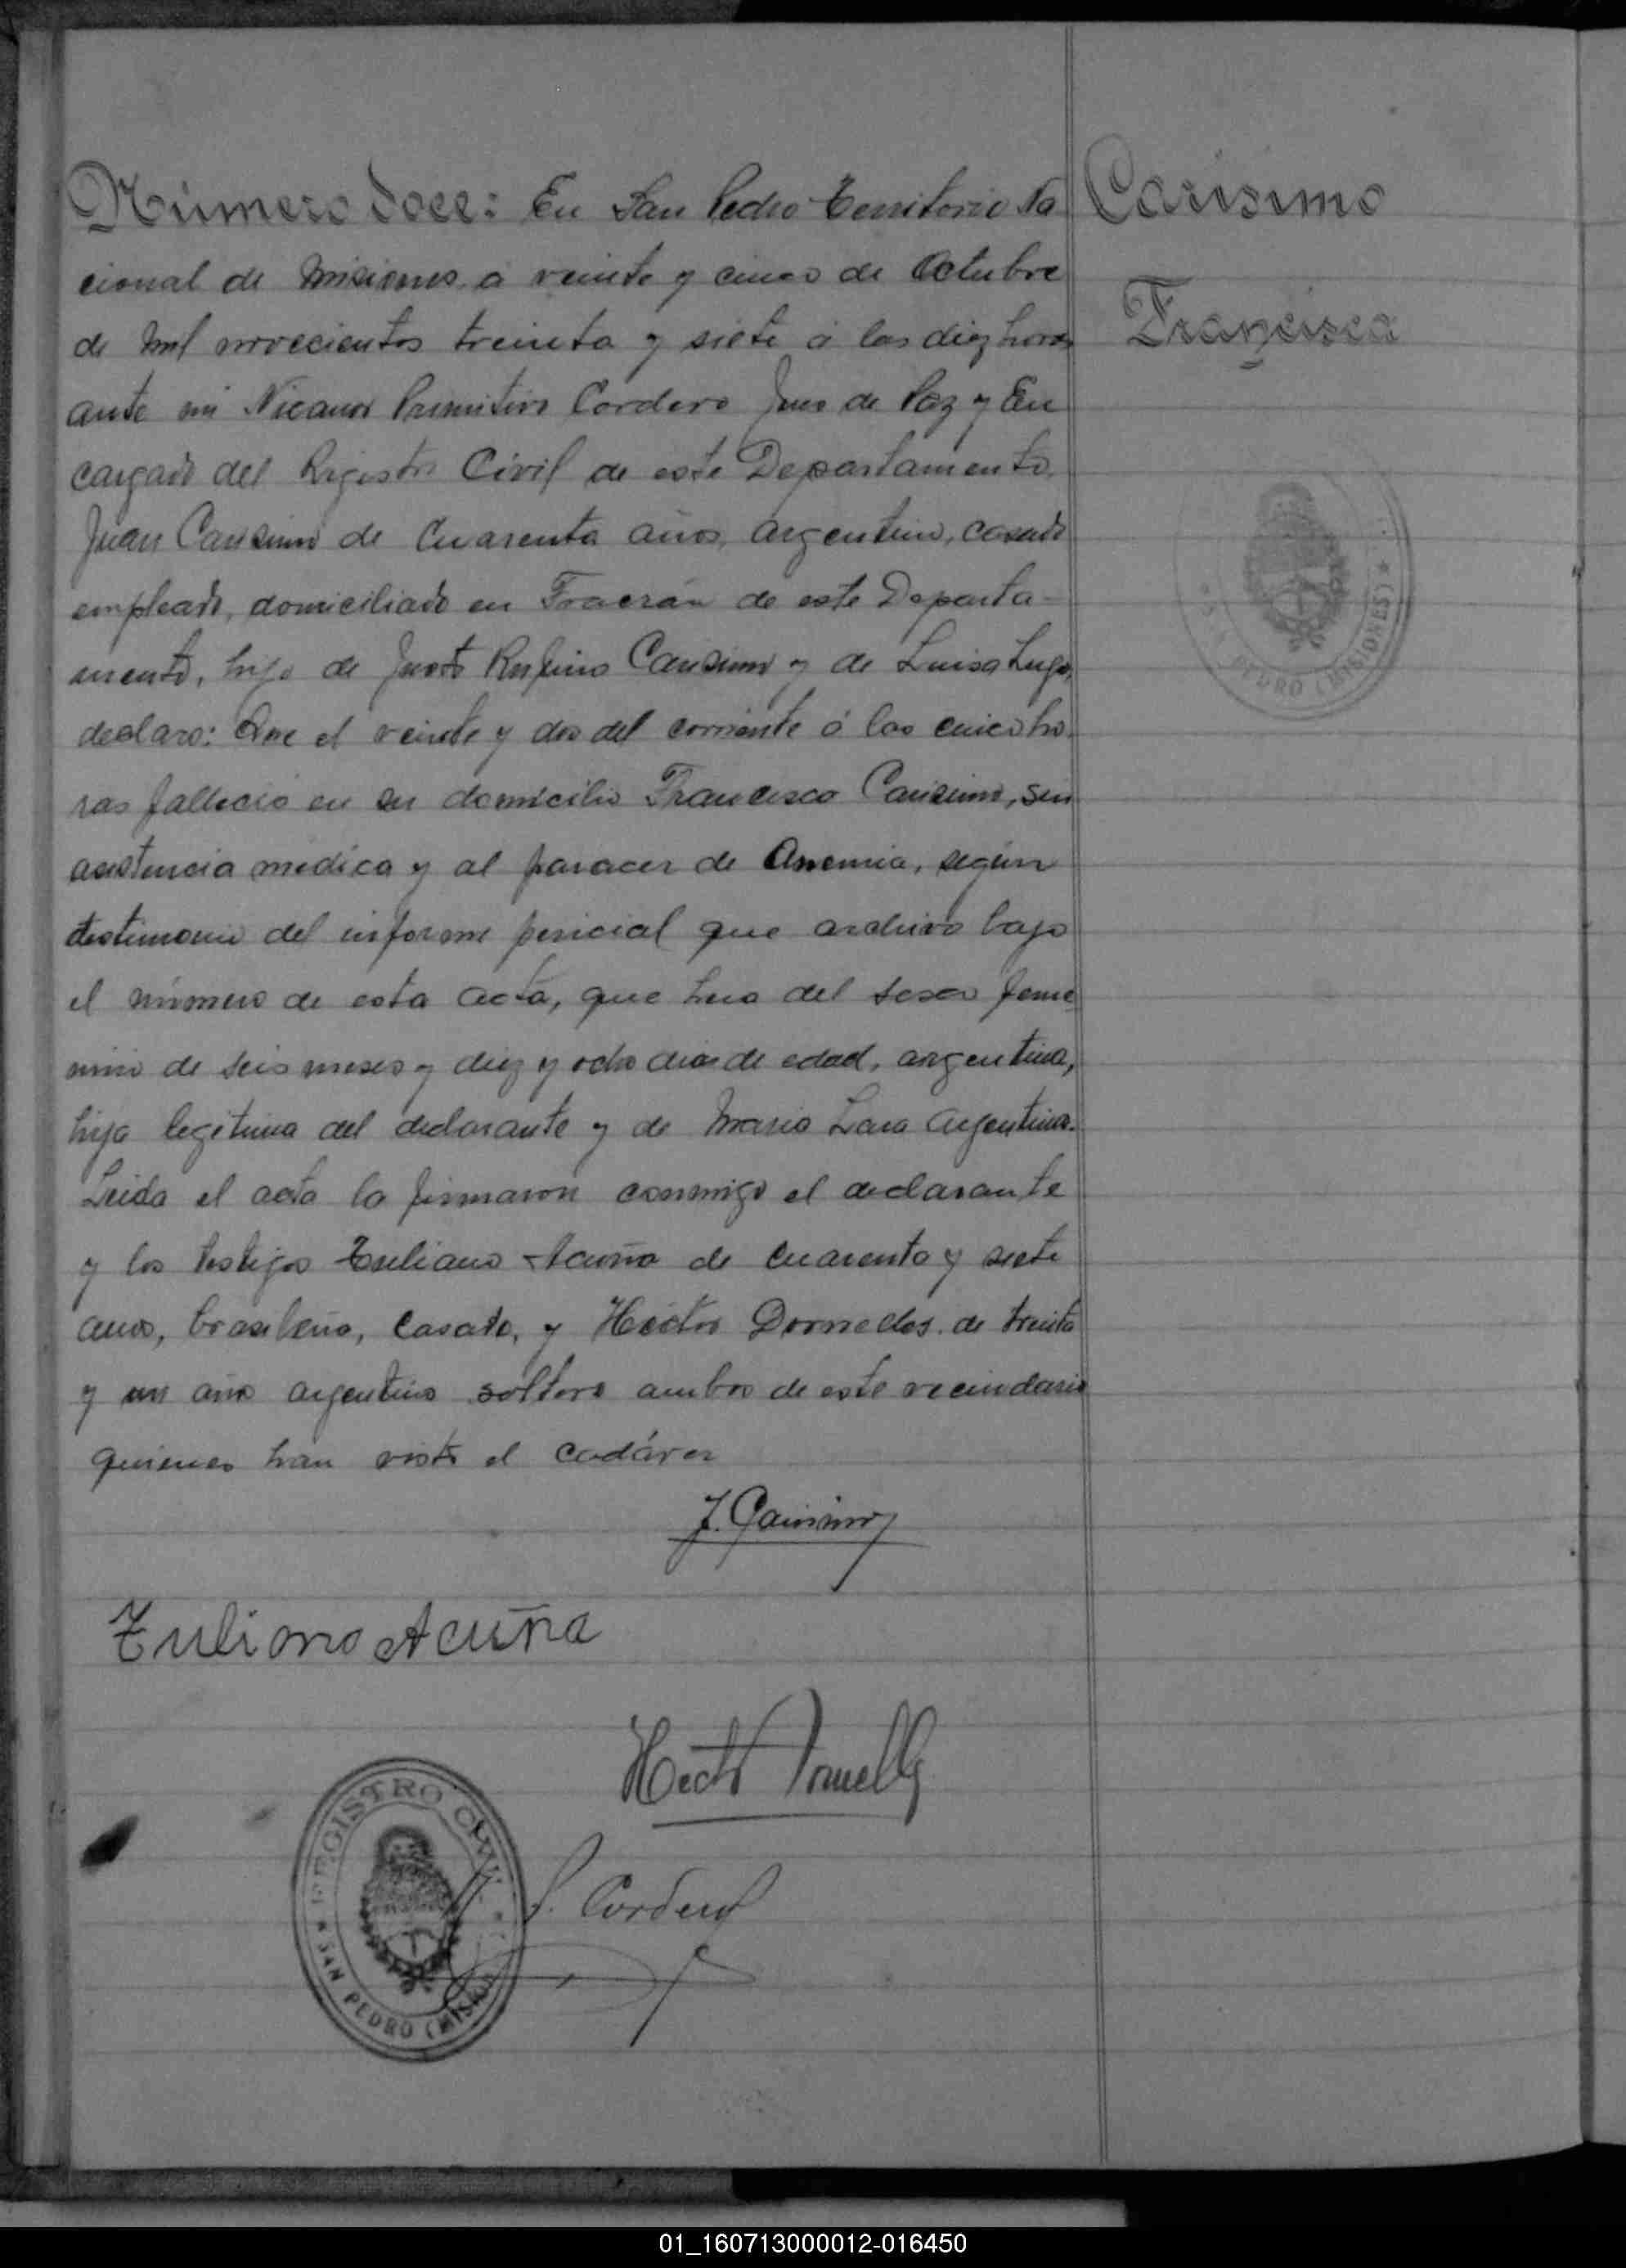 Número doce: En San Pedro Territorio Na
cional de Misiones á veinte y cinco de Octubre
de mil novecientos treinta y siete á las diez horas
ante mi Nicanor Primitivo Cordero Juez de Paz y En
cargado del Registro Civil de este Departamento,
Juan Carisimo de cuarenta años, argentino, casado
empleado, domiciliado en Fracrán de este Departa-
mento, hijo de Justo Rufino Carisimo y de Luisa Lugo,
declaro: Que el veinte y dos del corriente á las cinco ho
ras falleció en su domicilio Francisca Carisimo, sin
asistencia médica y al paracer de Anemia, según
testimonio del informe pericial que archivo bajo
el número de esta acta, que era del sexo feme
nino de seis meses y diez y ocho dias de edad, argentina,
hija legitima del declarante y de Maria Lara argentina.
Leida el acta la firmaron conmigo el declarante
y los testigos Tuliano Acuña de cuarenta y siete
anos, brasileño, casado, y Héctor Dornelles de treinta
y un año argentino soltero ambos de este vecindario
quienes han visto el cadáver
J. Carisimo
Tuliano Acuña
Hector Dornelles
P. Cordero
REGISTRO CIVIL
SAN PEDRO (MISIONES)
Carisimo
Francisca
PEDRO (MISIONES)
01_160713000012-016450